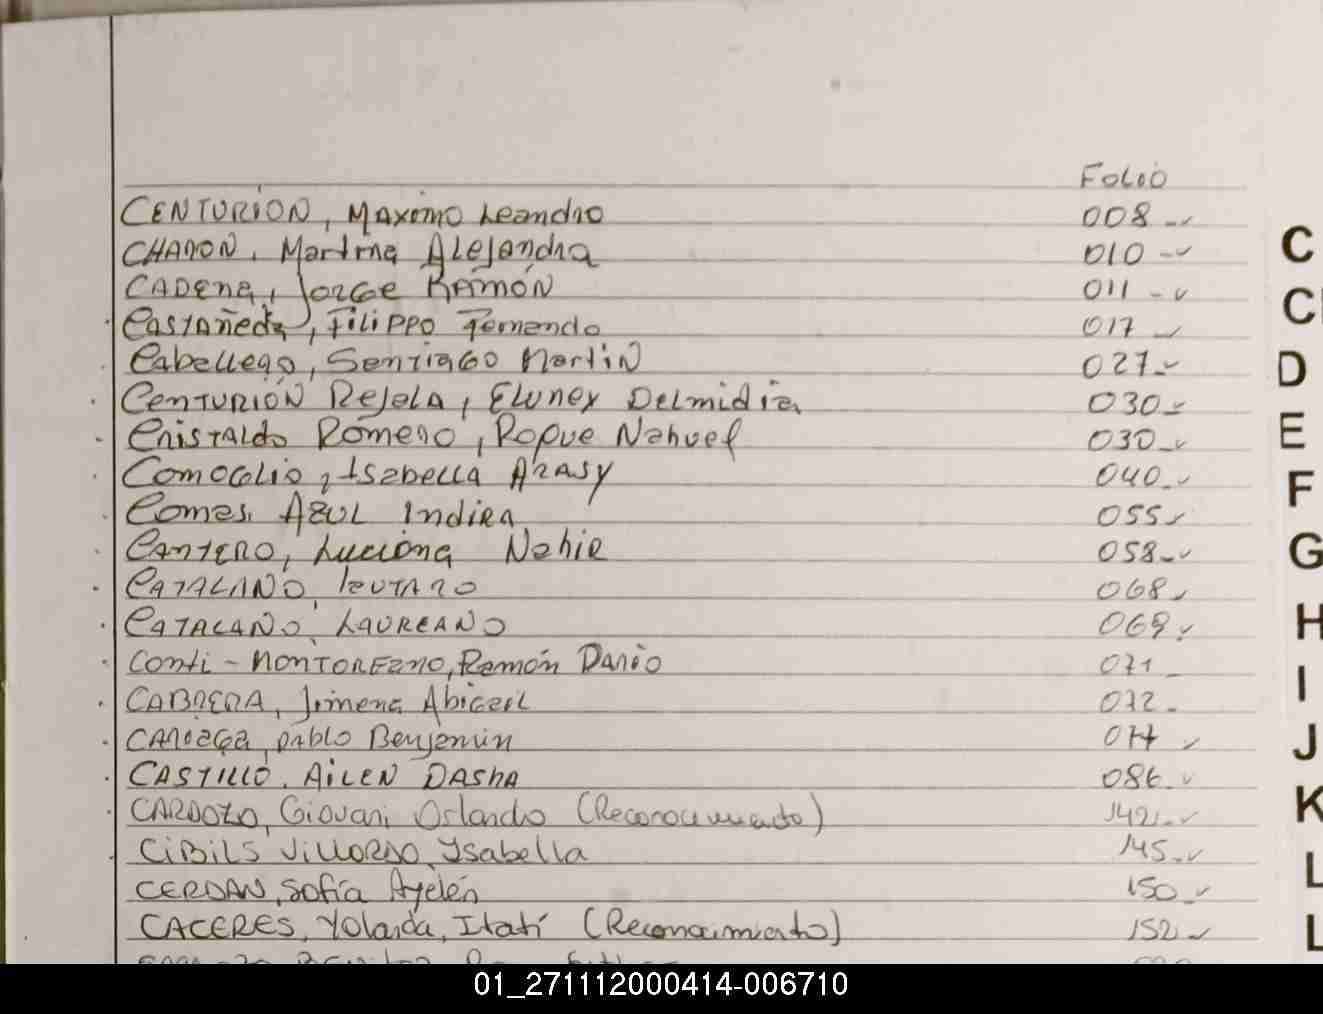 FOLIO
CENTURIÓN, Maximo Leandro 008
CHAMON, Martina Alejandra 010
CADENA, Jorge Ramón 011
Castañeda, Filippo Fernando 017
Caballero, Santiago Martin 027
CENTURIÓN Rejala, Eluney Delmidia 030
Cristaldo Romero, Roque Nahuel 030
Comoglio, Isabella Arasy 040
Gomes, Azul Indira 055
Cantero, Luciana Nahir 058
CATALANO, Lautaro 068
CATALANO, Laureano 069
Conti - Montorfano, Ramón Dario 071
CABRERA, Jimena Abigail 072
pablo Benjamin 077
CASTILLO, AILEN DASHA 086
CARDOZO, Giovani Orlando (Reconocimiento) 142
CIBILS Villordo, Ysabella 145
CERDAN, Sofía Ayelén 150
CACERES, Yolanda, Itatí (Reconocimiento) 152
C
D
E
F
G
H
I
J
K
L
L
01_271112000414-006710